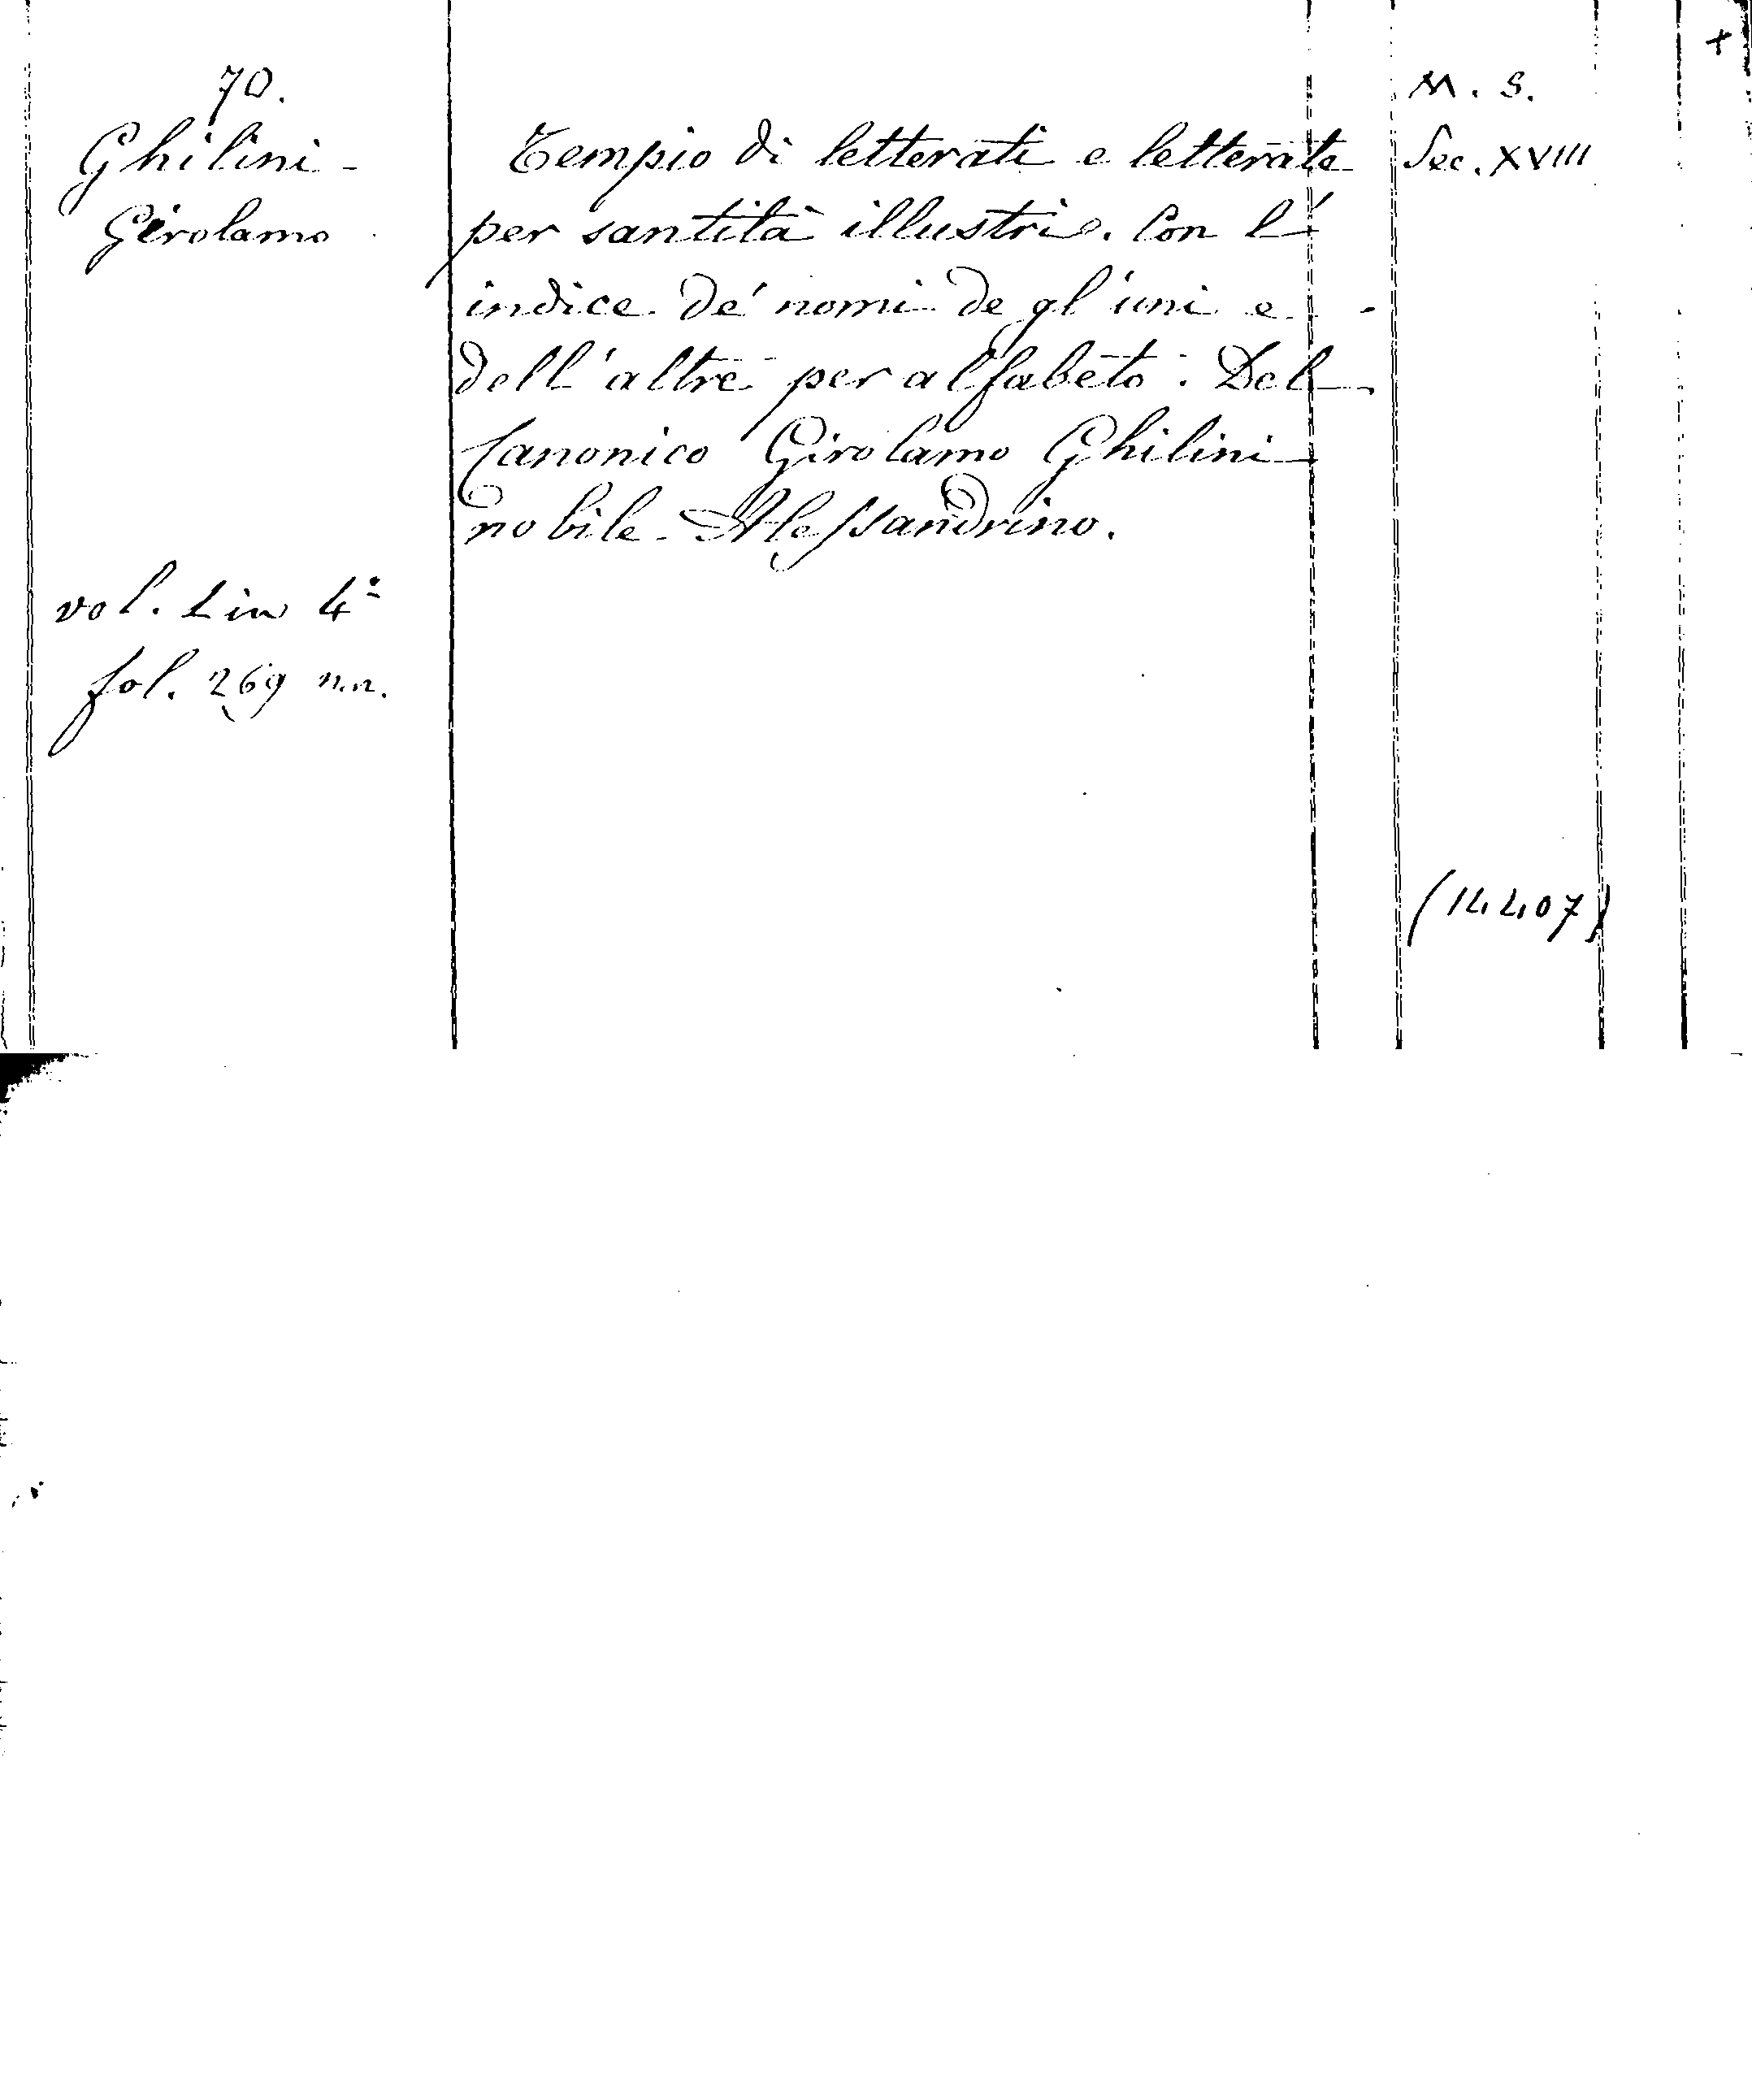 +
70.
M. S.
Ghilini
Girolamo
Tempio di letterati e letterate
per santità illustri. Con l'
indice de' nomi de gl'uni e
dell'altre per alfabeto. Del
Canonico Girolamo Ghilini
nobile Alessandrino.
Sec. XVIII
vol. 1 in 4º
fol. 269 n.n.
(14407)